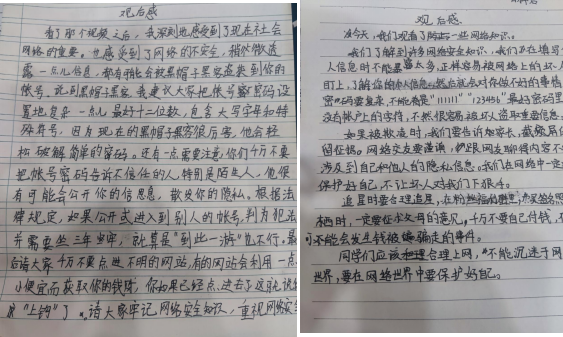 观后感
看了那个视频之后，我深刻地感受到了现在社会
网络的重要。也感受到了网络的不安全，稍微微透
露一点儿信息，都有可能会被黑帽子黑客盗取到你的
帐号，说到黑帽子黑客，我建议大家把帐号密码设
置地复杂一点儿，最好十二位数，包含大写字母和特
殊符号，因为现在的黑帽子黑客很厉害，他会轻
松破解简单的密码。还有一点需要注意，你们4万不要
把帐号密码告诉不信任的人，特别是陌生人，他很
有可能会公开你的信息，散发你的隐私。根据法
律规定，如果公开式进入到别人的帐号，判为犯法
并需要坐三年牢，就算是"到此一游"也不行。最
后请大家4万不要点进不明的网站，有的网站会利用一点
小便宜而获取你的钱财，你如果已经点进去了这就说
是"上钩"了。请大家牢记网络安全知识，重视网络安
观后感
今天，我们观看了一些网络知识。
我们了解到许多网络安全知识，我们在填写
人信息时不能太多，这样容易被网络上的坏人
盯上，了解你的信息然后就会对你做不好的事情
密码要复杂，不能像"111111""123456"最好密码里
没有帐户上的字符，不然很容易被坏人盗取重要信息。
如果被欺凌时，我们要告诉如家长，截屏
留证据。网络交友要谨慎，跟网友聊得内容不
涉及到自己和他人的隐私信息。我们在网络中一定
保护好自己，不让坏人对我们下狠手。
追星时要合理追星，在粉丝
栖时，一定要征求父母的意见，4万不要自己付钱，
可不能会发生钱被骗走的事件。
同学们应该合理上网，"不能沉迷于网
世界，要在网络世界中要保护好自己。